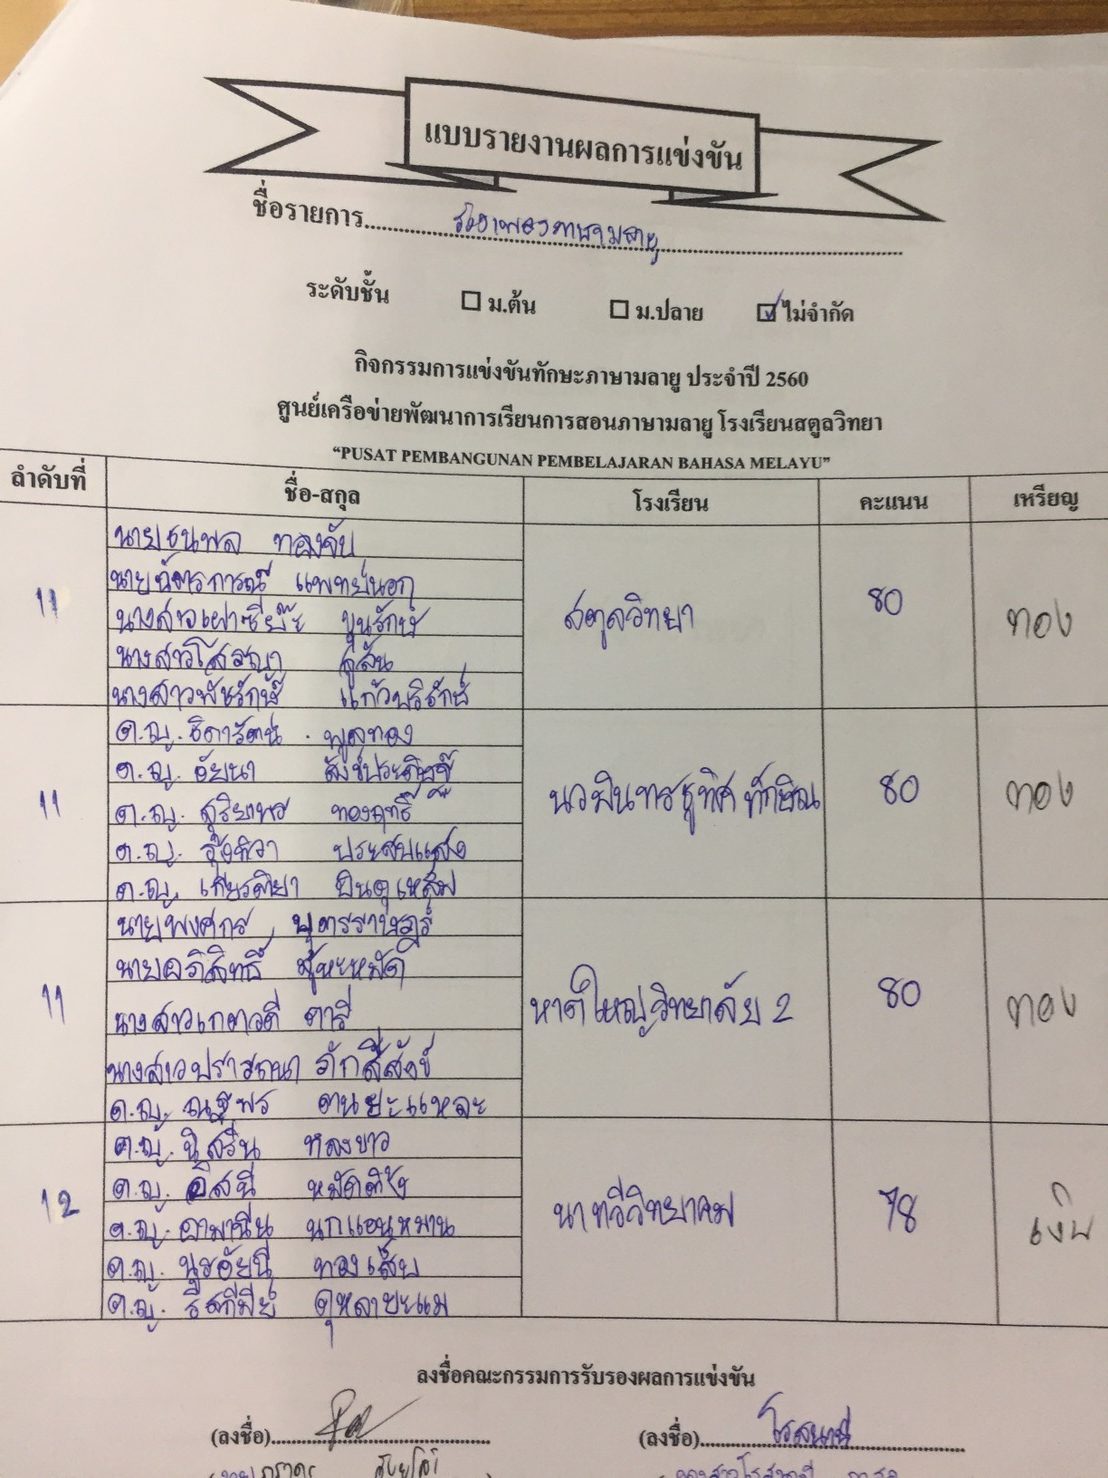 แบบรายงานผลการแข่งขัน
ชื่อรายการ ร้องเพลงภาษามลายู
ระดับชั้น ม.ต้น ม.ปลาย ไม่จำกัด
กิจกรรมการแข่งขันทักษะภาษามลายู ประจำปี 2560
ศูนย์เครือข่ายพัฒนาการเรียนการสอนภาษามลายู โรงเรียนสตูลวิทยา
“PUSAT PEMBANGUNAN PEMBELAJARAN BAHASA MELAYU”
ลำดับที่ ชื่อ-สกุล โรงเรียน คะแนน เหรียญ
11 สตูลวิทยา 80 ทอง
นายธนพล ทองจับ
นายฉัตรการณ์ แพทย์นอก
นางสาว ขุนรักษ์
นางสาวโสรญา
นางสาวพันรักษ์ แก้วบริรักษ์
11 นวมินทราชูทิศ ทักษิณ 80 ทอง
ด.ญ. ธิดารัตน์ พูลทอง
ด.ญ. อัยนา สังข์ประดิษฐ์
ด.ญ. สุริยาพร ทองฤทธิ์
ด.ญ. รุ้งทิวา ประสบแสง
ด.ญ. เกียรติยา บินตุเหล็ม
11 หาดใหญ่วิทยาลัย 2 80 ทอง
นายพงศกร บุตรราษฎร์
นายอภิสิทธิ์ มูหะหมัด
นางสาวเกตวดี ดารี
นางสาวปรารถนา ภักดีสังข์
ด.ญ. ณฐพร ตนยะแหละ
12 นาทวีวิทยาคม 78 เงิน
ด.ญ. นิสรีน หลงขาว
ด.ญ. อิสนี
ด.ญ. อามานีน นกแอนหมาน
ด.ญ. นูรอัยนี ทองเส็บ
ด.ญ. ดุหลายะแม
ลงชื่อคณะกรรมการรับรองผลการแข่งขัน
(ลงชื่อ) (ลงชื่อ)